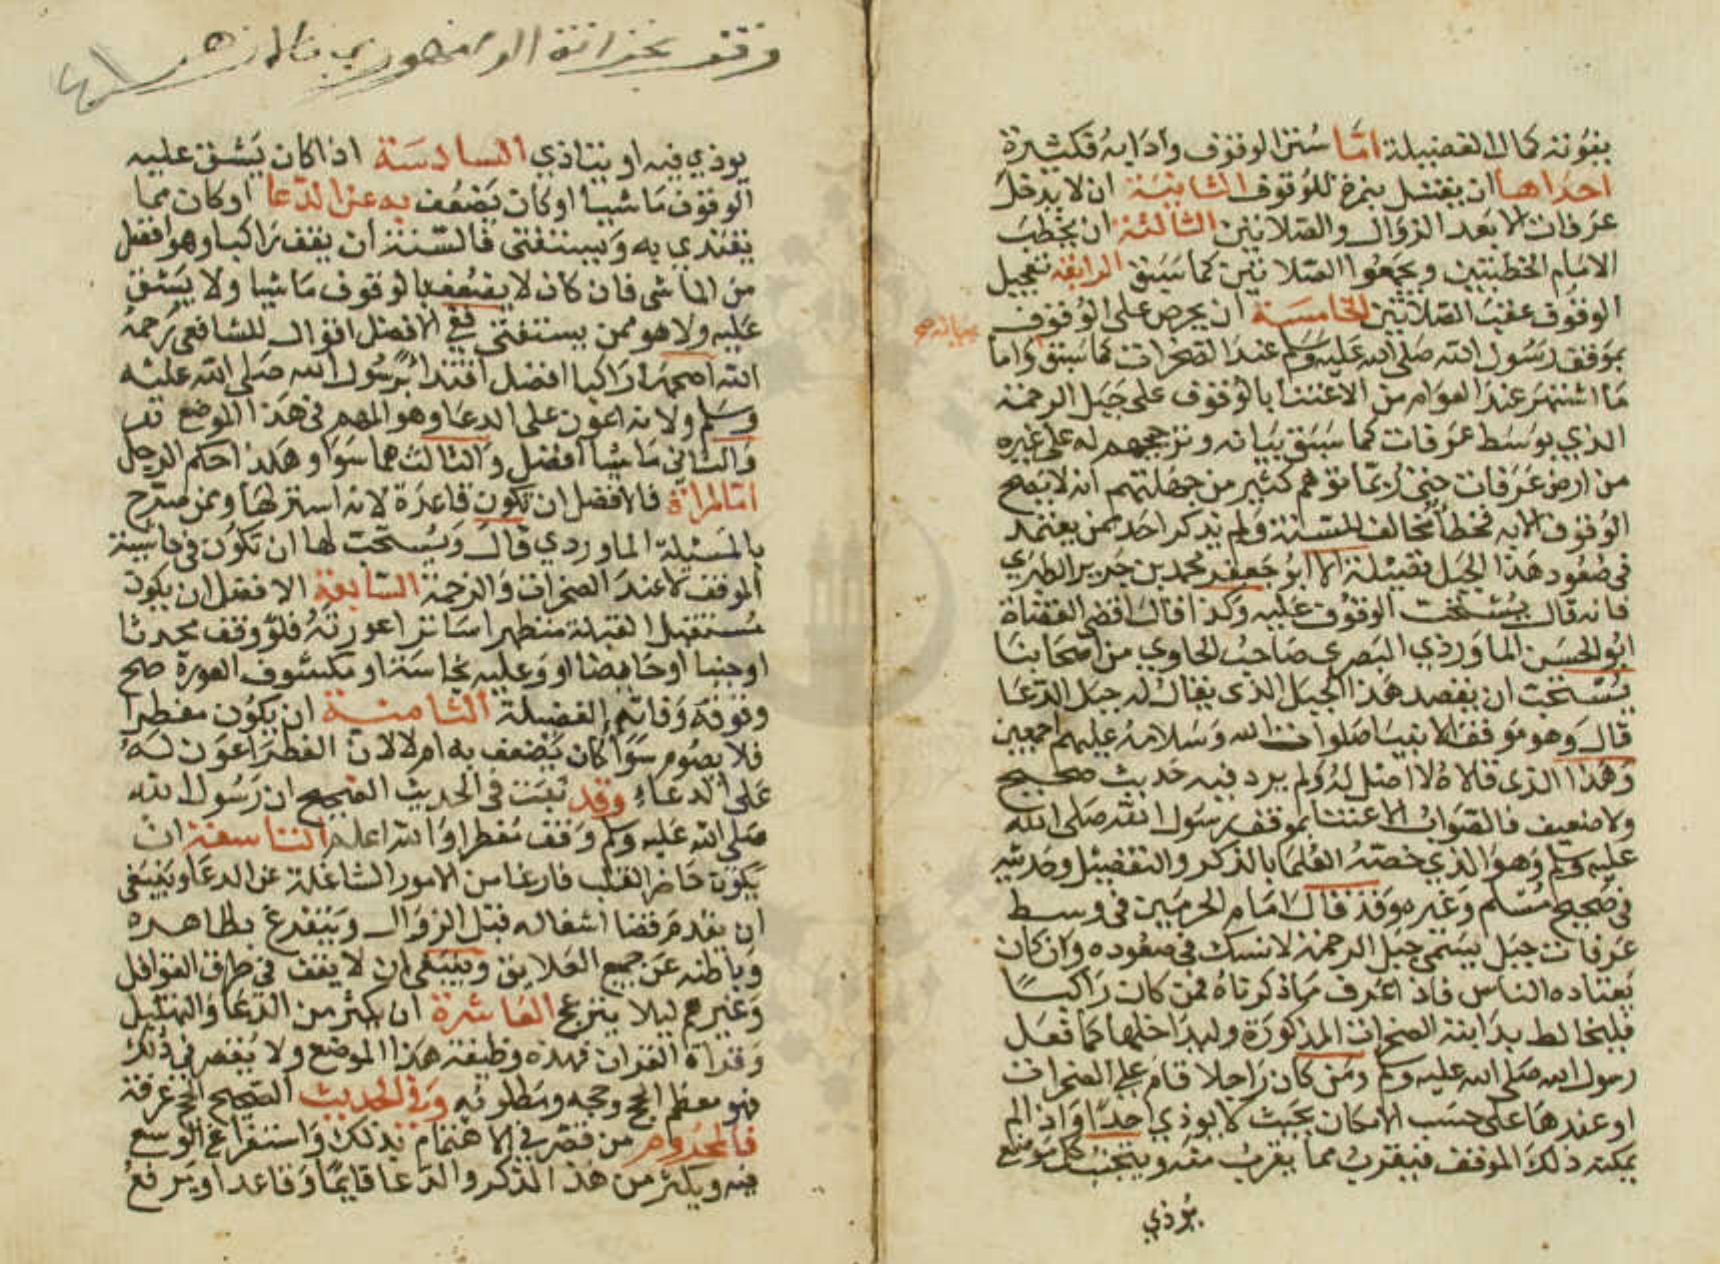 يفوته كمال الفضيلة اما سنن الوقوف وادابه فكثيرة
احداها ان يغتسل بنمرة للوقوف الثانية ان لا يدخل
عرفات الا بعد الزوال والصلاتين الثالثة ان يخطب
الامام الخطبتين ويجمعوا الصلاتين كما سبق الرابعة تعجيل
الوقوف عقب الصلاتين الخامسة ان يحرص على الوقوف
بموقف رسول الله صلى الله عليه وسلم عند الصخرات كما سبق واما
ما اشتهر عند العوام من الاعتنا بالوقوف على جبل الرحمة
الذي بوسط عرفات كما سبق بيانه وترجيحهم له على غيره
من ارض عرفات حتى ربما توهم كثير من جهلتهم انه لا يصح
الوقوف الا به فخطا مخالف للسنة ولم يذكر احد ممن يعتمد
في صعود هذا الجبل فضيلة الا ابو جعفر محمد بن جرير الطبري
فانه قال يستحب الوقوف عليه وكذا قال اقضى القضاة
ابو الحسن الماوردي البصري صاحب الحاوي من اصحابنا
يستحب ان يقصد هذا الجبل الذي يقال له جبل الدعا
قال وهو موقف الانبيا صلوات الله وسلامه عليهم اجمعين
وهذا الذي قالاه لا اصل له ولم يرد فيه حديث صحيح
ولا ضعيف فالصواب الاعتنا بموقف رسول الله صلى الله
عليه وسلم وهو الذي خصته العلما بالذكر والتفضيل وحديثه
في صحيح مسلم وغيره وقد قال امام الحرمين في وسط
عرفات جبل يسمى جبل الرحمة لا نسك في صعوده وان كان
يعتاده الناس فاذا عرف ما ذكرناه فمن كان راكبا
فليخالط بدابته الصخرات المذكورة وليداخلها كما فعل
رسول الله صلى الله عليه وسلم ومن كان راجلا قام على الصخرات
او عندها على حسب الامكان بحيث لا يوذي احدا واذا لم
يمكنه ذلك الموقف فيقرب مما يقرب منه ويتجنب كل موضع
يوذي
وقف بخزانة
يوذي فيه او يتاذي السادسة اذا كان يشق عليه
الوقوف ماشيا او كان يضعف به عن الدعا او كان مما
يقتدي به ويستفتى فالسنة ان يقف راكبا وهو افضل
من الماشى فان كان لا يضعف بالوقوف ماشيا ولا يشق
عليه ولا هو ممن يستفتى ففي الافضل اقوال للشافعي رحمه
الله اصحها راكبا افضل اقتدا برسول الله صلى الله عليه
وسلم ولانه اعون على الدعا وهو المهم في هذا الموضع
والثاني ماشيا افضل والثالث هما سوا وهذا حكم الرجل
اما المراة فالافضل ان تكون قاعدة لانه استر لها وممن صرح
بالمسيلة الماوردي قال ويستحب لها ان تكون في حاشية
الموقف لا عند الصخرات والزحمة السابعة الافضل ان يكون
مستقبل القبلة متطهرا ساترا عورته فلو وقف محدثا
او جنبا او حايضا او وعليه نجاسة او مكشوف العورة صح
وقوفه وفاتته الفضيلة الثامنة ان يكون مفطرا
فلا يصوم سوا كان يضعف به ام لا لان الفطر اعون له
على الدعاء وقد ثبت في الحديث الصحيح ان رسول الله
صلى الله عليه وسلم وقف مفطرا والله اعلم التاسعة ان
يكون حاضر القلب فارغا من الامور الشاغلة عن الدعا وينبغي
ان يقدم قضا اشغاله قبل الزوال ويتفرغ بظاهره
وباطنه عن جميع العلايق وينبغي ان لا يقف في طرق القوافل
وغيرهم ليلا ينزعج العاشرة ان يكثر من الدعا والتهليل
وقراة القران فهذه وظيفة هذا الموضع ولا يقصر في ذلك
فهو معظم الحج وحجه ومطلوبه وفي الحديث الصحيح الحج عرفة
فالمحروم من قصر في الاهتمام بذلك واستفراغ الوسع
فيه ويكثر من هذا الذكر والدعا قايما وقاعدا ويرفع